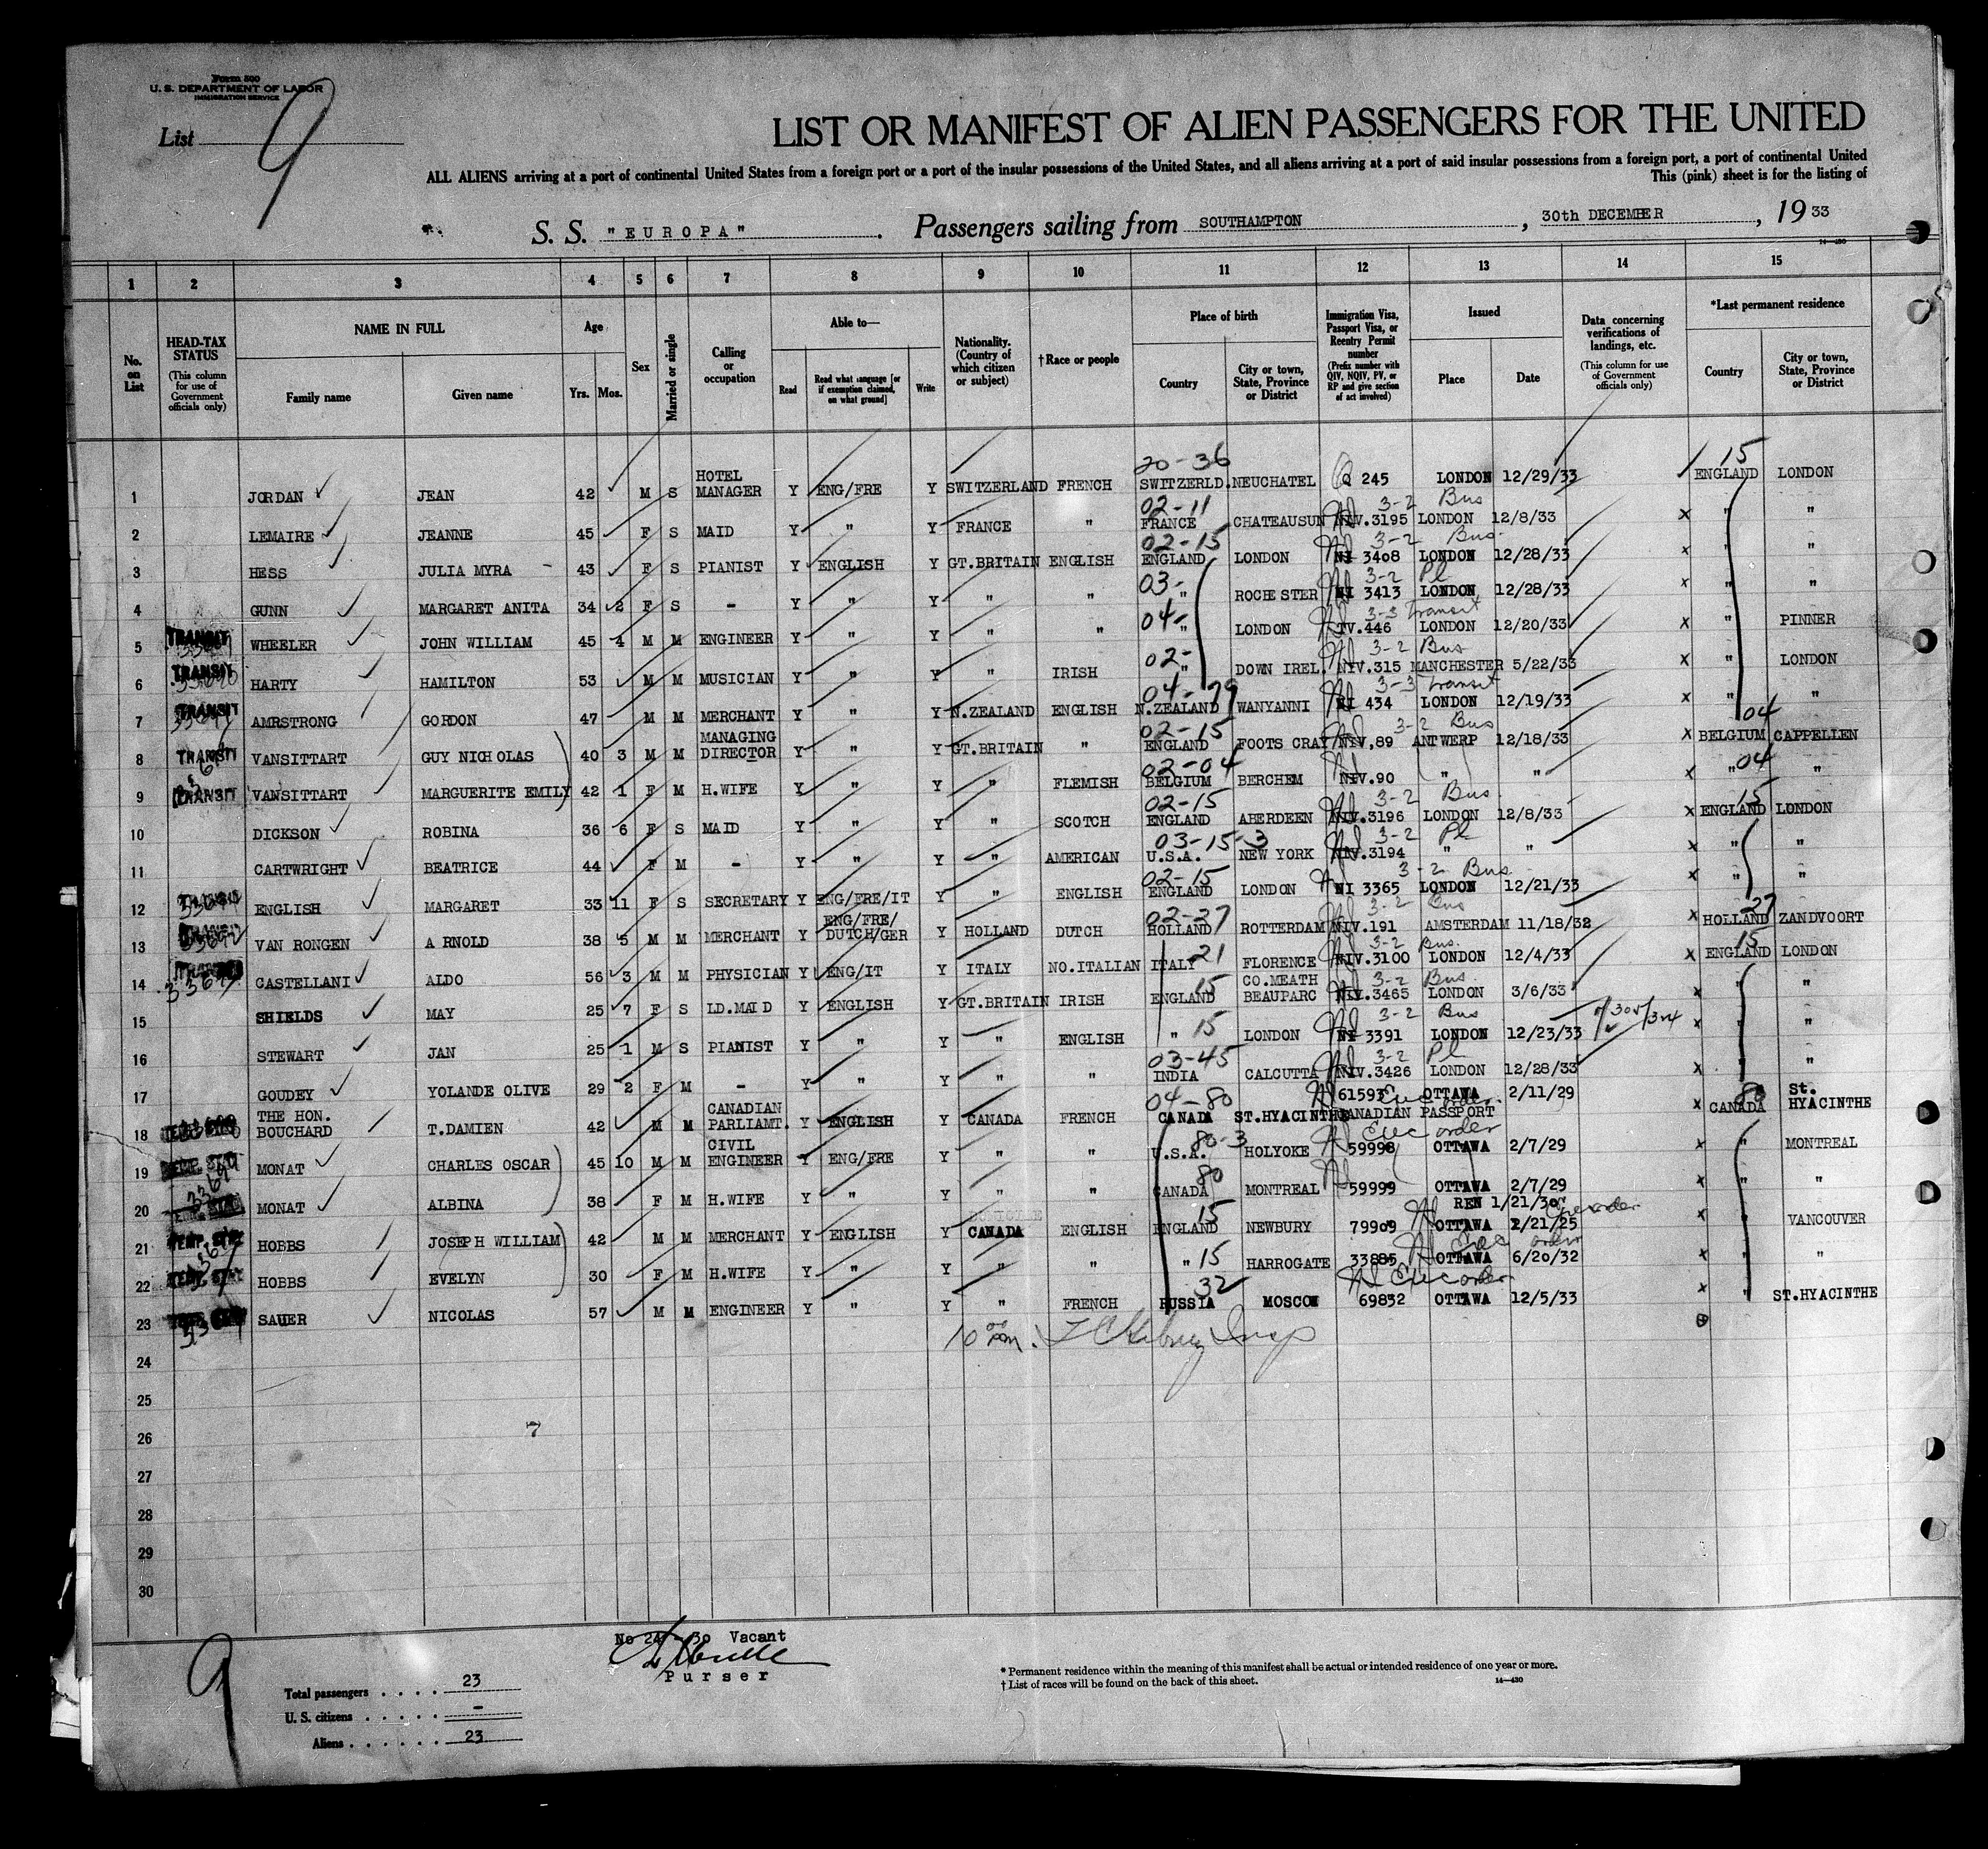 Form 500
U. S. DEPARTMENT OF LABOR
IMMIGRATION SERVICE
List 9
LIST OR MANIFEST OF ALIEN PASSENGERS FOR THE UNITED
ALL ALIENS arriving at a port of continental United States from a foreign port or a port of the insular possessions of the United States, and all aliens arriving at a port of said insular possessions from a foreign port, a port of continental United
This (pink) sheet is for the listing of
S. S. "EUROPA" Passengers sailing from SOUTHAMPTON, 30th DECEMBER, 1933
14—430
1 2 3 4 5 6 7 8 9 10 11 12 13 14 15
No. on List
HEAD-TAX STATUS (This column for use of Government officials only)
NAME IN FULL
Family name Given name
Age
Yrs. Mos.
Sex
Married or single
Calling or occupation
Able to—
Read Read what language [or if exemption claimed, on what ground] Write
Nationality. (Country of which citizen or subject)
†Race or people
Place of birth
Country City or town, State, Province or District
Immigration Visa, Passport Visa, or Reentry Permit number (Prefix number with QIV, NQIV, PV, or RP and give section of act involved)
Issued
Place Date
Data concerning verifications of landings, etc. (This column for use of Government officials only)
*Last permanent residence
Country City or town, State, Province or District
20-36 15
1 JORDAN JEAN 42 M S HOTEL MANAGER Y ENG/FRE Y SWITZERLAND FRENCH SWITZERLD. NEUCHATEL Q 245 LONDON 12/29/33 ENGLAND LONDON
02-11 3-2 Bus
2 LEMAIRE JEANNE 45 F S MAID Y " Y FRANCE " FRANCE CHATEAUSUN NIV.3195 LONDON 12/8/33 x " "
02-15 3-2 Bus
3 HESS JULIA MYRA 43 F S PIANIST Y ENGLISH Y GT.BRITAIN ENGLISH ENGLAND LONDON NI 3408 LONDON 12/28/33 x " "
03- 3-2 Pl
4 GUNN MARGARET ANITA 34 2 F S - Y " Y " " " ROCHESTER NI 3413 LONDON 12/28/33 x " "
04- 3-3 Transit
5 TRANSIT WHEELER JOHN WILLIAM 45 4 M M ENGINEER Y " Y " " " LONDON TV.446 LONDON 12/20/33 x " PINNER
02- 3-2 Bus
6 TRANSIT HARTY HAMILTON 53 M M MUSICIAN Y " Y " IRISH " DOWN IREL. NIV.315 MANCHESTER 5/22/33 x " LONDON
04-79 3-3 Transit
7 TRANSIT AMRSTRONG GORDON 47 M M MERCHANT Y " Y N.ZEALAND ENGLISH N.ZEALAND WANYANNI NI 434 LONDON 12/19/33 x " "
02-15 3-2 Bus 04
8 TRANSIT VANSITTART GUY NICHOLAS 40 3 M M MANAGING DIRECTOR Y " Y GT.BRITAIN " ENGLAND FOOTS CRAY NIV.89 ANTWERP 12/18/33 x BELGIUM CAPPELLEN
02-04 04
9 TRANSIT VANSITTART MARGUERITE EMILY 42 1 F M H.WIFE Y " Y " FLEMISH BELGIUM BERCHEM NIV.90 " " x " "
02-15 3-2 Bus. 15
10 DICKSON ROBINA 36 6 F S MAID Y " Y " SCOTCH ENGLAND ABERDEEN NIV.3196 LONDON 12/8/33 x ENGLAND LONDON
03-15-3 3-2 Pl
11 CARTWRIGHT BEATRICE 44 F M - Y " Y " AMERICAN U.S.A. NEW YORK NIV.3194 " " x " "
02-15 3-2 Bus
12 ENGLISH MARGARET 33 11 F S SECRETARY Y ENG/FRE/IT Y " ENGLISH ENGLAND LONDON NI 3365 LONDON 12/21/33 x " "
02-27 3-2 Bus 27
13 VAN RONGEN A RNOLD 38 5 M M MERCHANT Y ENG/FRE/ DUTCH/GER Y HOLLAND DUTCH HOLLAND ROTTERDAM NIV.191 AMSTERDAM 11/18/32 x HOLLAND ZANDVOORT
21 3-2 Bus. 15
14 CASTELLANI ALDO 56 3 M M PHYSICIAN Y ENG/IT Y ITALY NO.ITALIAN ITALY FLORENCE NIV.3100 LONDON 12/4/33 x ENGLAND LONDON
15 3-2 Bus.
15 SHIELDS MAY 25 7 F S LD.MAID Y ENGLISH Y GT.BRITAIN IRISH ENGLAND CO.MEATH BEAUPARC NIV.3465 LONDON 3/6/33 x " "
15 3-2 Bus
16 STEWART JAN 25 1 M S PIANIST Y " Y " ENGLISH " LONDON NI 3391 LONDON 12/23/33 x " "
03-45 3-2 Pl
17 GOUDEY YOLANDE OLIVE 29 2 F M - Y " Y " " INDIA CALCUTTA NIV.3426 LONDON 12/28/33 x " "
04-80 Exec order. 80
18 THE HON. BOUCHARD T.DAMIEN 42 M M CANADIAN PARLIAMT. Y ENGLISH Y CANADA FRENCH CANADA ST.HYACINTHE 61593 OTTAWA 2/11/29 CANADIAN PASSPORT x CANADA St. HYACINTHE
80-3 Exec order
19 MONAT CHARLES OSCAR 45 10 M M CIVIL ENGINEER Y ENG/FRE Y " " U.S.A. HOLYOKE 59998 OTTAWA 2/7/29 x " MONTREAL
80
20 MONAT ALBINA 38 F M H.WIFE Y " Y " " CANADA MONTREAL 59999 OTTAWA 2/7/29 x " "
15 REN 1/21/30 Exec order
21 TEMP. STAY HOBBS JOSEPH WILLIAM 42 M M MERCHANT Y ENGLISH Y CANADA ENGLISH ENGLAND NEWBURY 79909 OTTAWA 2/21/25 x " VANCOUVER
15 Exec order
22 TEMP. STAY HOBBS EVELYN 30 F M H.WIFE Y " Y " " " HARROGATE 33885 OTTAWA 6/20/32 x " "
32 Exec order
23 SAUER NICOLAS 57 M M ENGINEER Y " Y " FRENCH RUSSIA MOSCOW 69832 OTTAWA 12/5/33 x " ST.HYACINTHE
24
25
26
27
28
29
30
7
No 24 - 30 Vacant
Purser
9
Total passengers . . . . 23
U. S. citizens . . . . . -
Aliens . . . . . . 23
* Permanent residence within the meaning of this manifest shall be actual or intended residence of one year or more.
† List of races will be found on the back of this sheet. 14—430